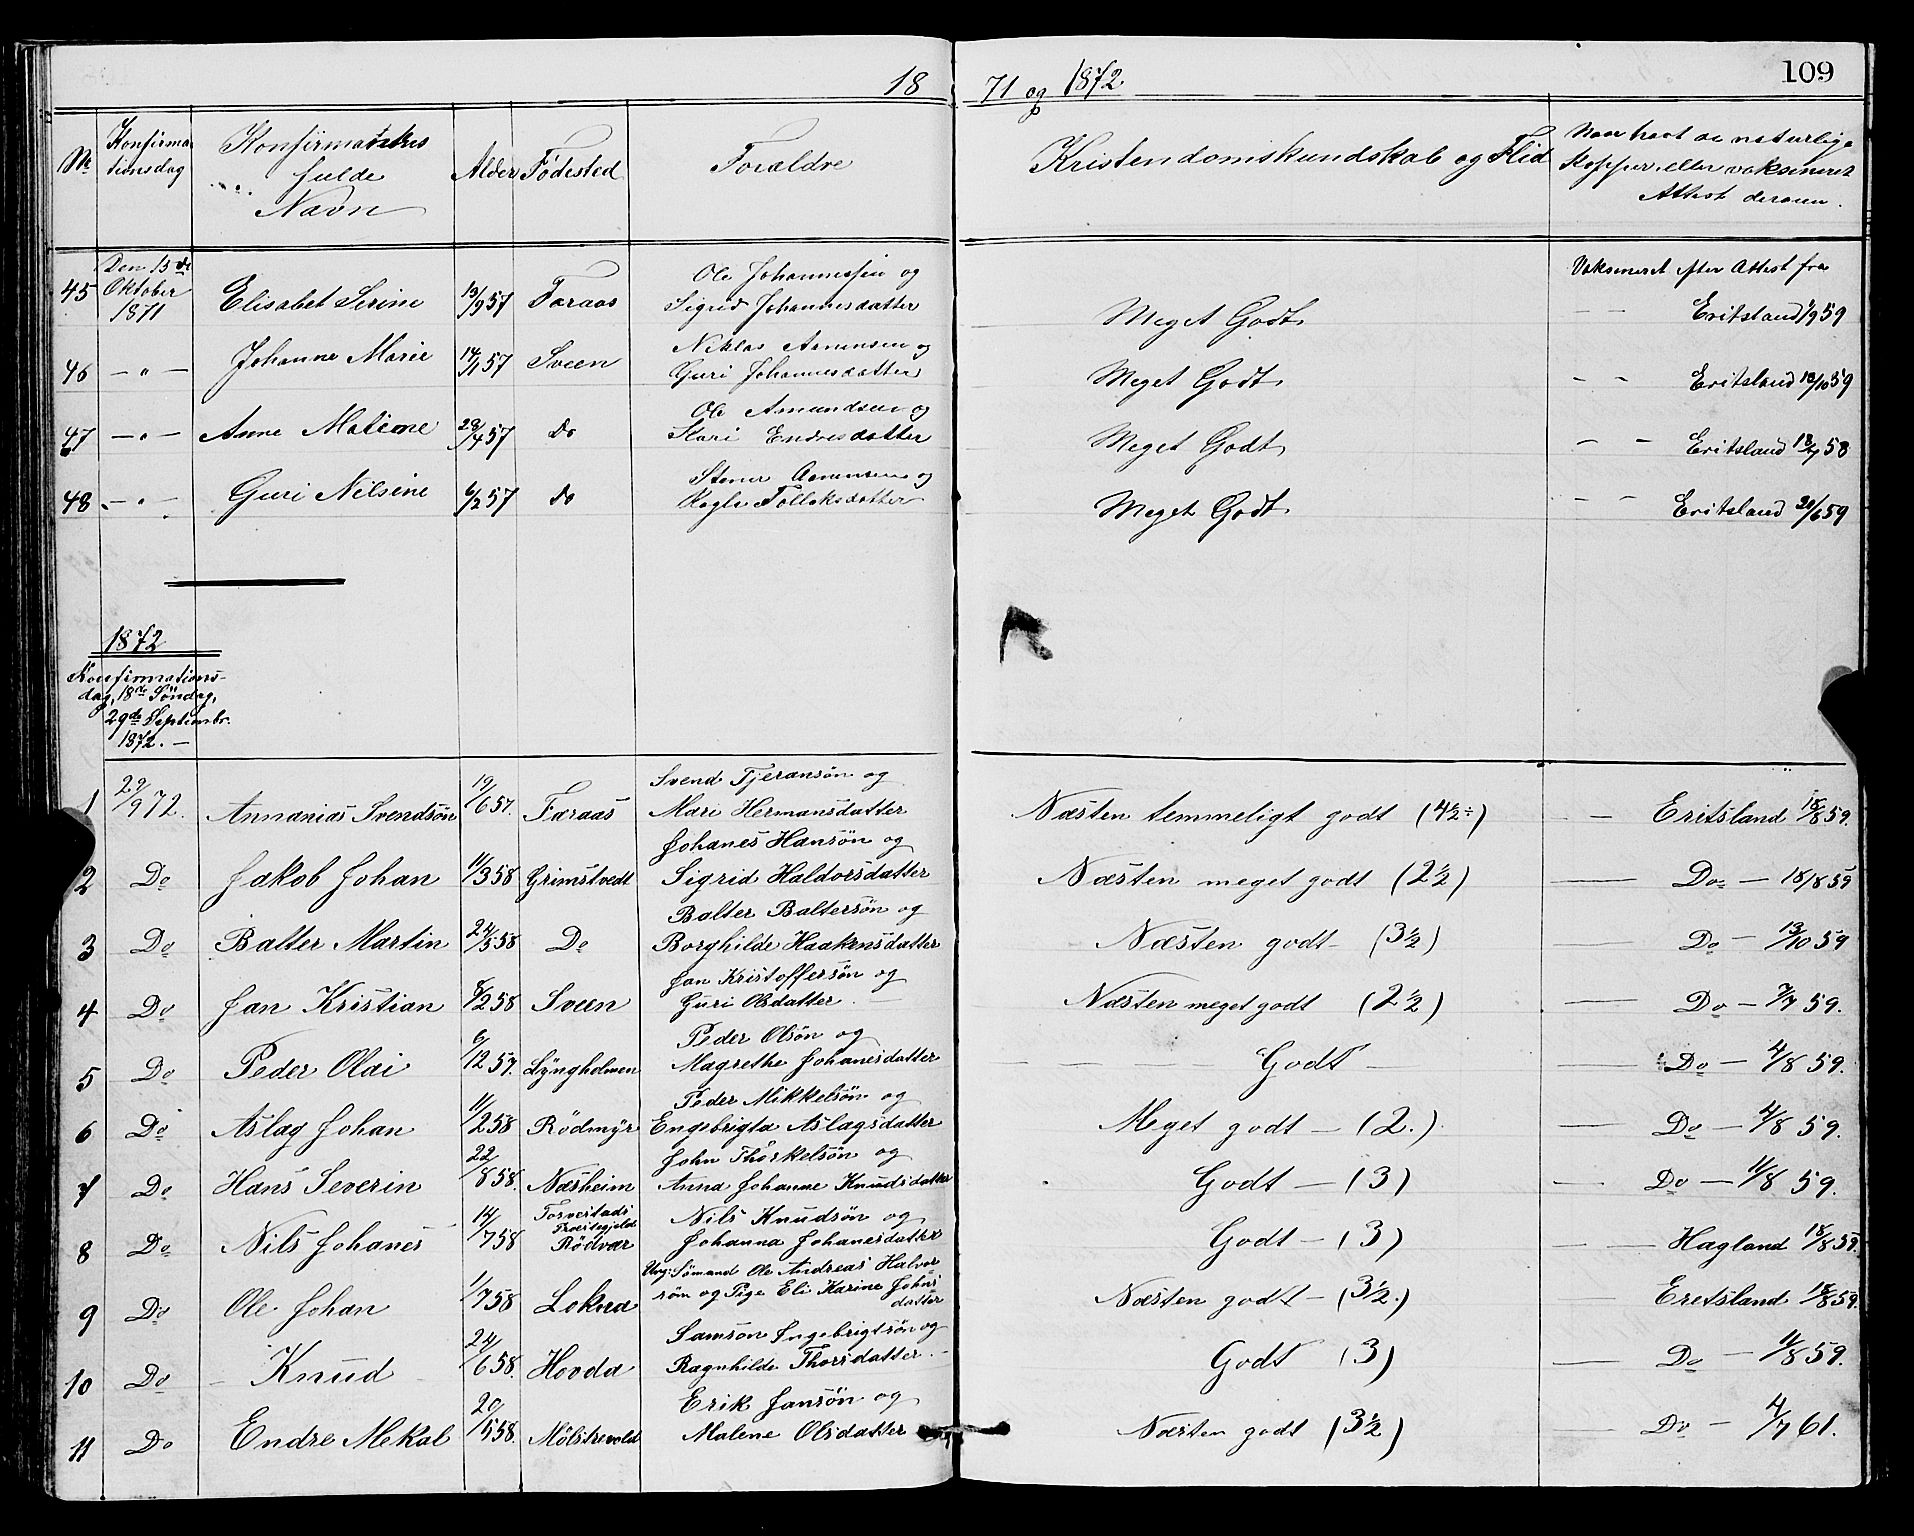 1871 og 1872
109
No Konfirmationsdag Konfirmantens fulde Navn Alder Fødested Forældre Kristendomskundskab og Flid Naar havt de naturlige Kopper eller vaksineret Attest derom.
Vaksineret efter Attest fra
45 Den 15de Oktober 1871 Elisabet Serine 19/9 57 Færaas Ole Johannessen og Sigrid Johannesdatter Meget Godt — — Eritsland 1/9 59
46 — " — Johanne Marie 14/1 57 Sveen Niklas Amunsen og Guri Johannesdatter Meget Godt — — Eritsland 18/10 59
47 — " — Anne Malene 28/4 57 Do Ole Amundsen og Kari Endresdatter Meget Godt — — Eritsland 58
48 — " — Guri Nilsine 6/2 57 Do Amunsen og Follaksdatter Meget Godt — — Eritsland 20/6 59
1872
Konfirmations-
dag, 18de Söndag,
29de Septembr.
1872. —
1 29/9 72. Annanias Svendsön 19/6 57. Færaas Svend Tjeransön og Mari Hermansdatter Næsten temmeligt godt (4½÷) — Eritsland 18/8 59.
2 Do Jakob Johan 11/3 58 Grimstvedt Johanes Hansön og Sigrid Haldorsdatter Næsten meget godt (2½) — Do — 18/8 59
3 Do Balter Martin 24/5 58 Do Balter Baltersön og Borghilde Haakensdatter Næsten godt — (3½) Do — 13/10 59
4 Do Jan Kristian 8/2 58 Sveen Jan Kristoffersön og Guri Olsdatter. Næsten meget godt (2½) — Do — 7/7 59.
5 Do Peder Olai 6/12 57. Lyngholmen Peder Olsön og Magrethe Johanesdatter — Godt — Do — 4/8 59.
6 Do Aslag Johan 11/2 58 Rödmyr Peder Mikkelsön og Engebrigta Aslagsdatter Meget godt — (2.) — Do — 4/8 59.
7 Do Hans Severin 22/8 58. Næsheim John Thorkelsön og Anna Johanne Knudsdatter Godt — (3) — Do — 11/8 59.
8 Do Nils Johanes 14/7 58 Torvestads Præstegjeld Rödvær Nils Knudsön og Johanna Johanesdatter Godt — (3) — Hagland 18/8 59.
9 Do Ole Johan 1/7 58 Lokna Ung: Sömand Ole Andreas Halvorsön og Pige Eli Karine Johnsdatter Næsten godt — (3½.) — Eretsland 18/8 59.
10 Do Knud 24/6 58. Hovda Samson Ingebrigtsön og Ragnhilde Thorsdatter. Godt (3) — Do — 11/8 59.
11 Do Endre Mekal 20/5 58. Mölstrevold Erik Jansön og Malene Olsdatter Næsten godt (3½) — Do — 4/7 61.